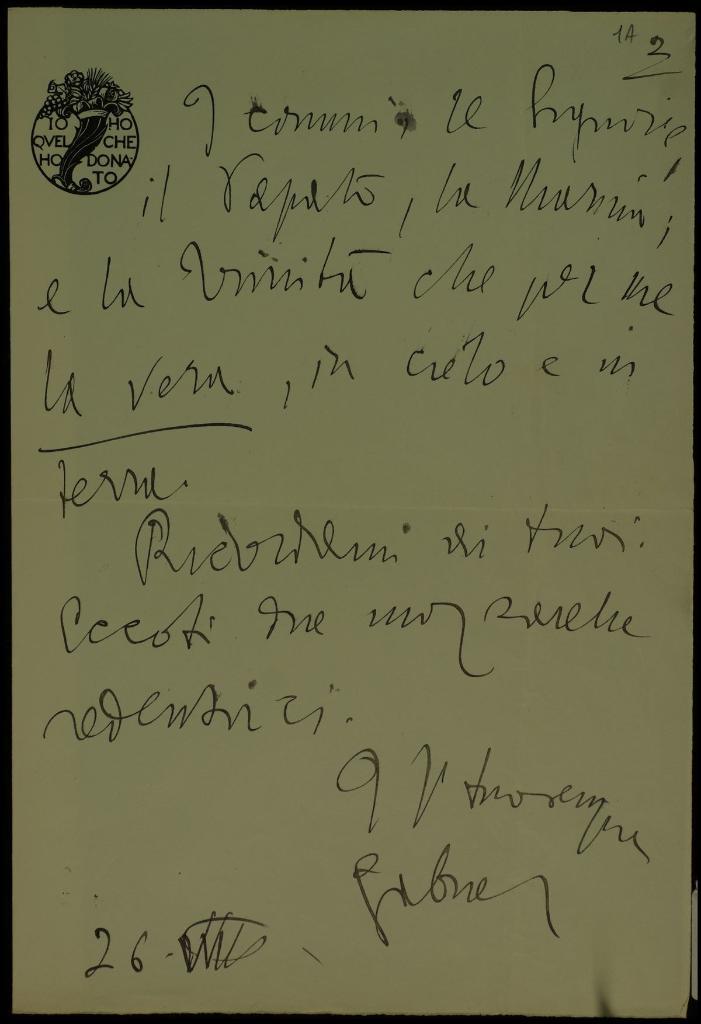 1A 2
IO HO
QVEL CHE
HO DONA
TO
I comuni, le Signorie,
il Papato, la
e la Trinità che per me
la vera, in cielo e in
terra.
Ricordami ai tuoi.
Eccoti due mozzarelle
redentrici.
Il tuo sempre
Gabriel
26.